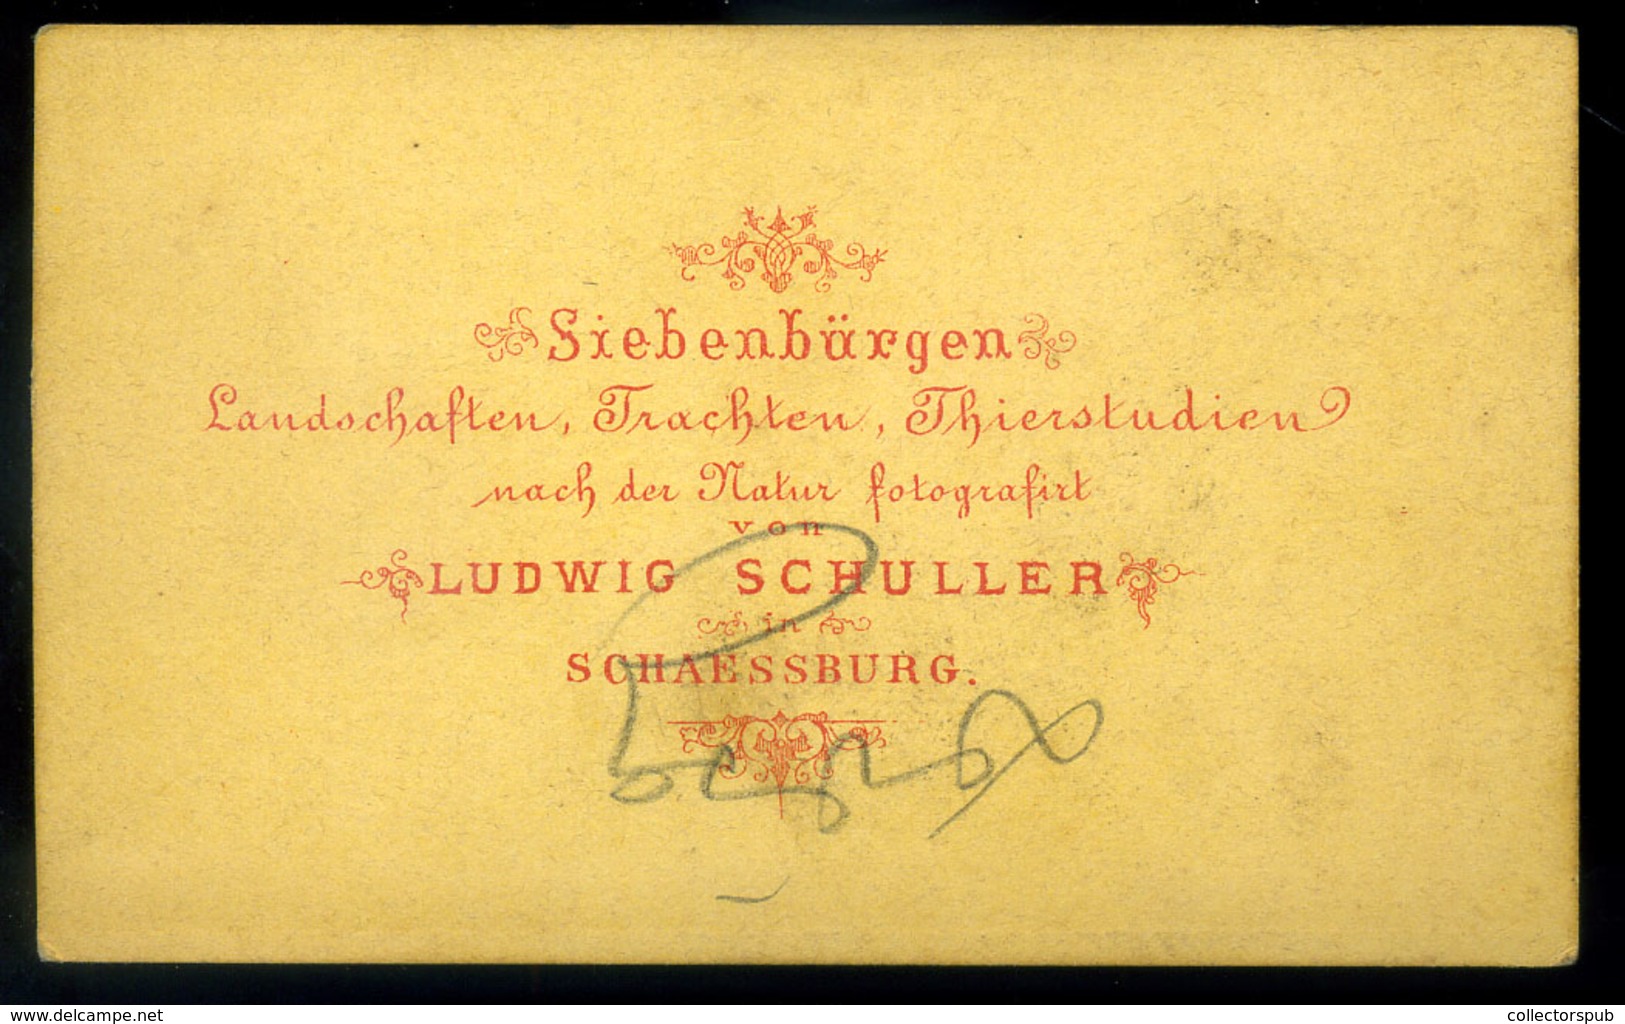 Siebenbürgen
Landschaften, Trachten, Thierstudien
nach der Natur fotografirt
von
LUDWIG SCHULLER
in
SCHAESSBURG.
www.delcampe.net
collectorspub